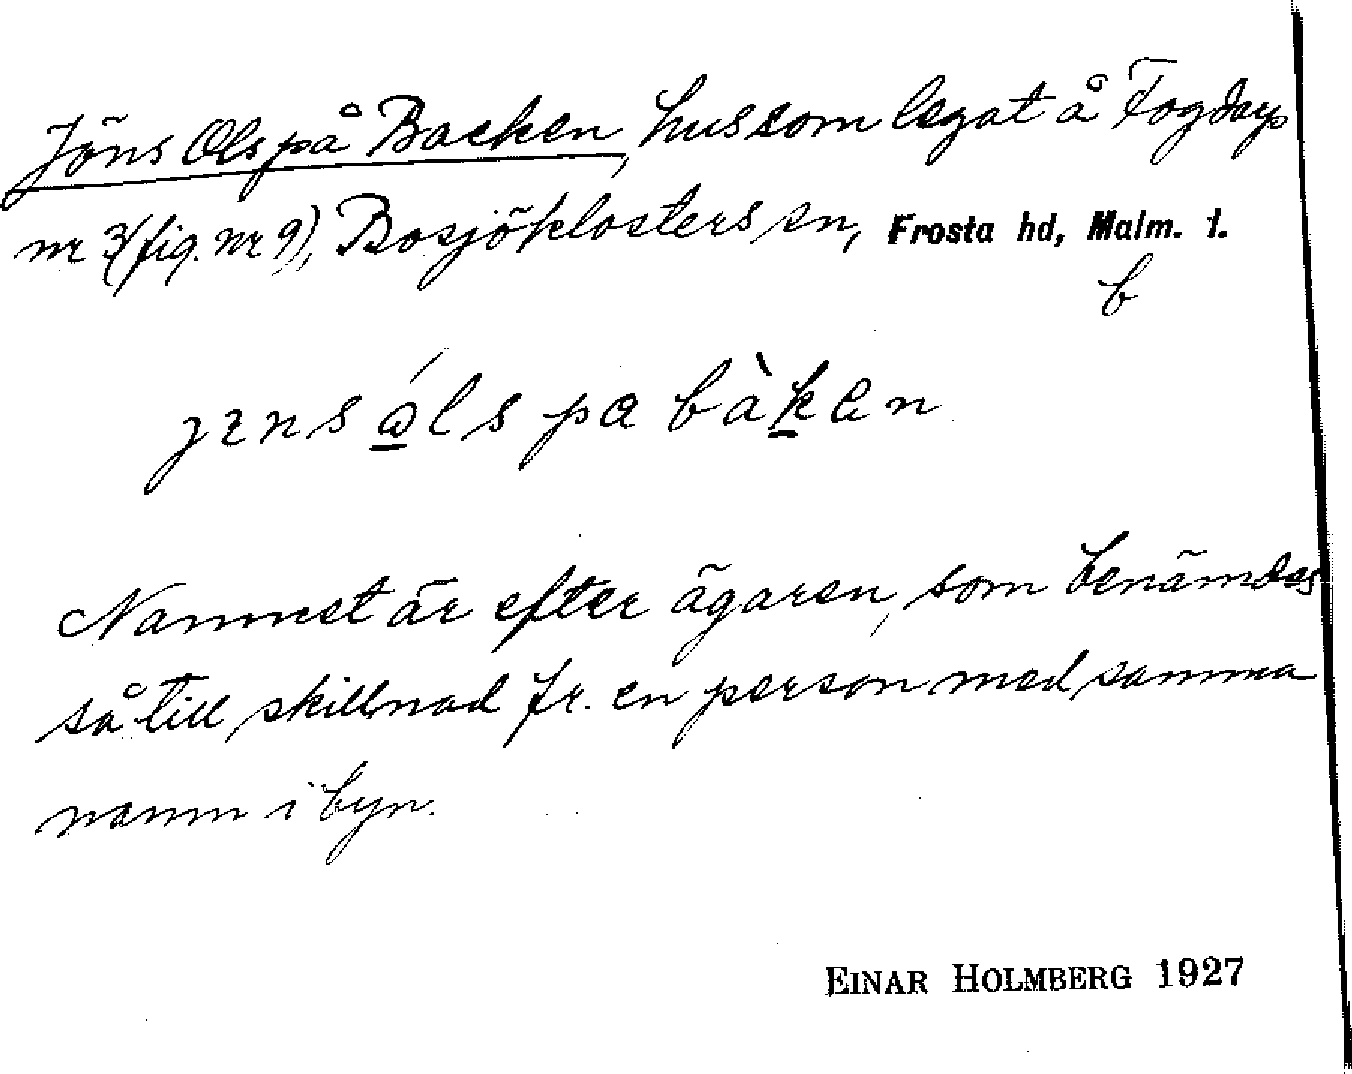 Jöns Ols på Backen, hus som legat å Fogdarp
nr 3 (fig. nr 9), Bosjöklosters sn, Frosta hd, Malm. l.
b
Namnet är efter ägaren, som benämdes
så till skillnad fr. en person med samma
namn i byn.
EINAR HOLMBERG 1927